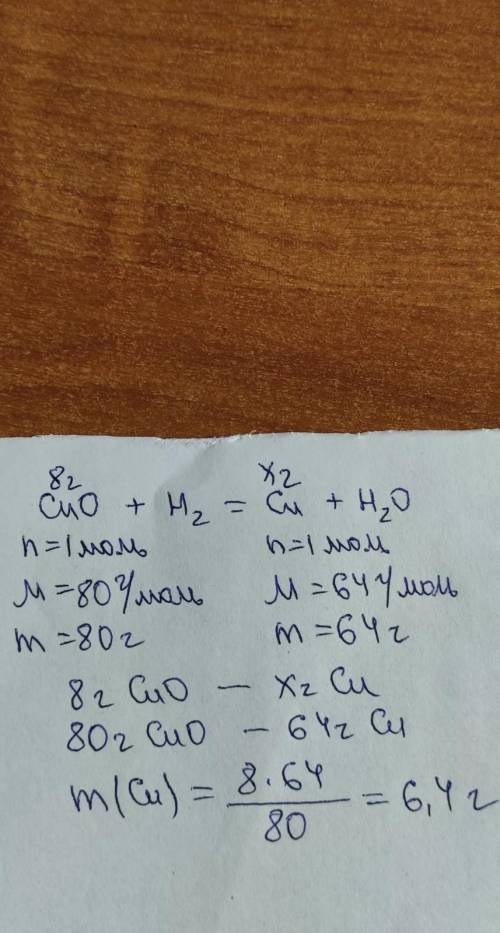 8г xг
CuO + H₂ = Cu + H₂O
n=1моль n=1моль
M=80г/моль M=64г/моль
m=80г m=64г
8г CuO — xг Cu
80г CuO — 64г Cu
m(Cu) = 8·64/80 = 6,4г